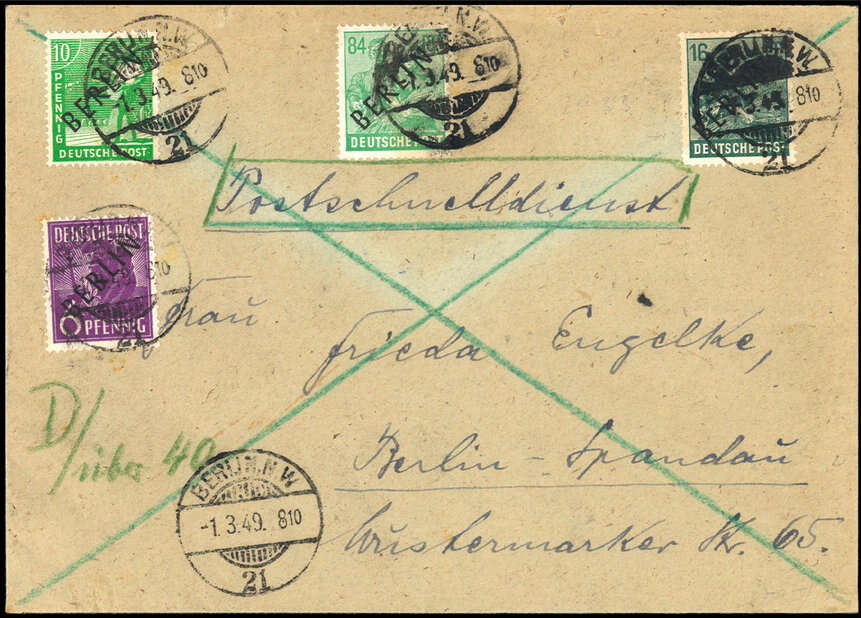 10
PFENNIG
BERLIN
DEUTSCHE POST
BERLIN.N.W.
-1.3.49. 810
21
84
BERLIN
DEUTSCHE POST
BERLIN.N.W.
-1.3.49. 810
16
BERLIN
DEUTSCHE POST
BERLIN.N.W.
3.49. 810
21
Postschnelldienst
DEUTSCHE POST
BERLIN
6 PFENNIG
810
21
Frau
Frieda Engelke,
D/
über 40
Berlin-Spandau
BERLIN.N.W.
-1.3.49. 810
21
Wustermarker Str. 65.